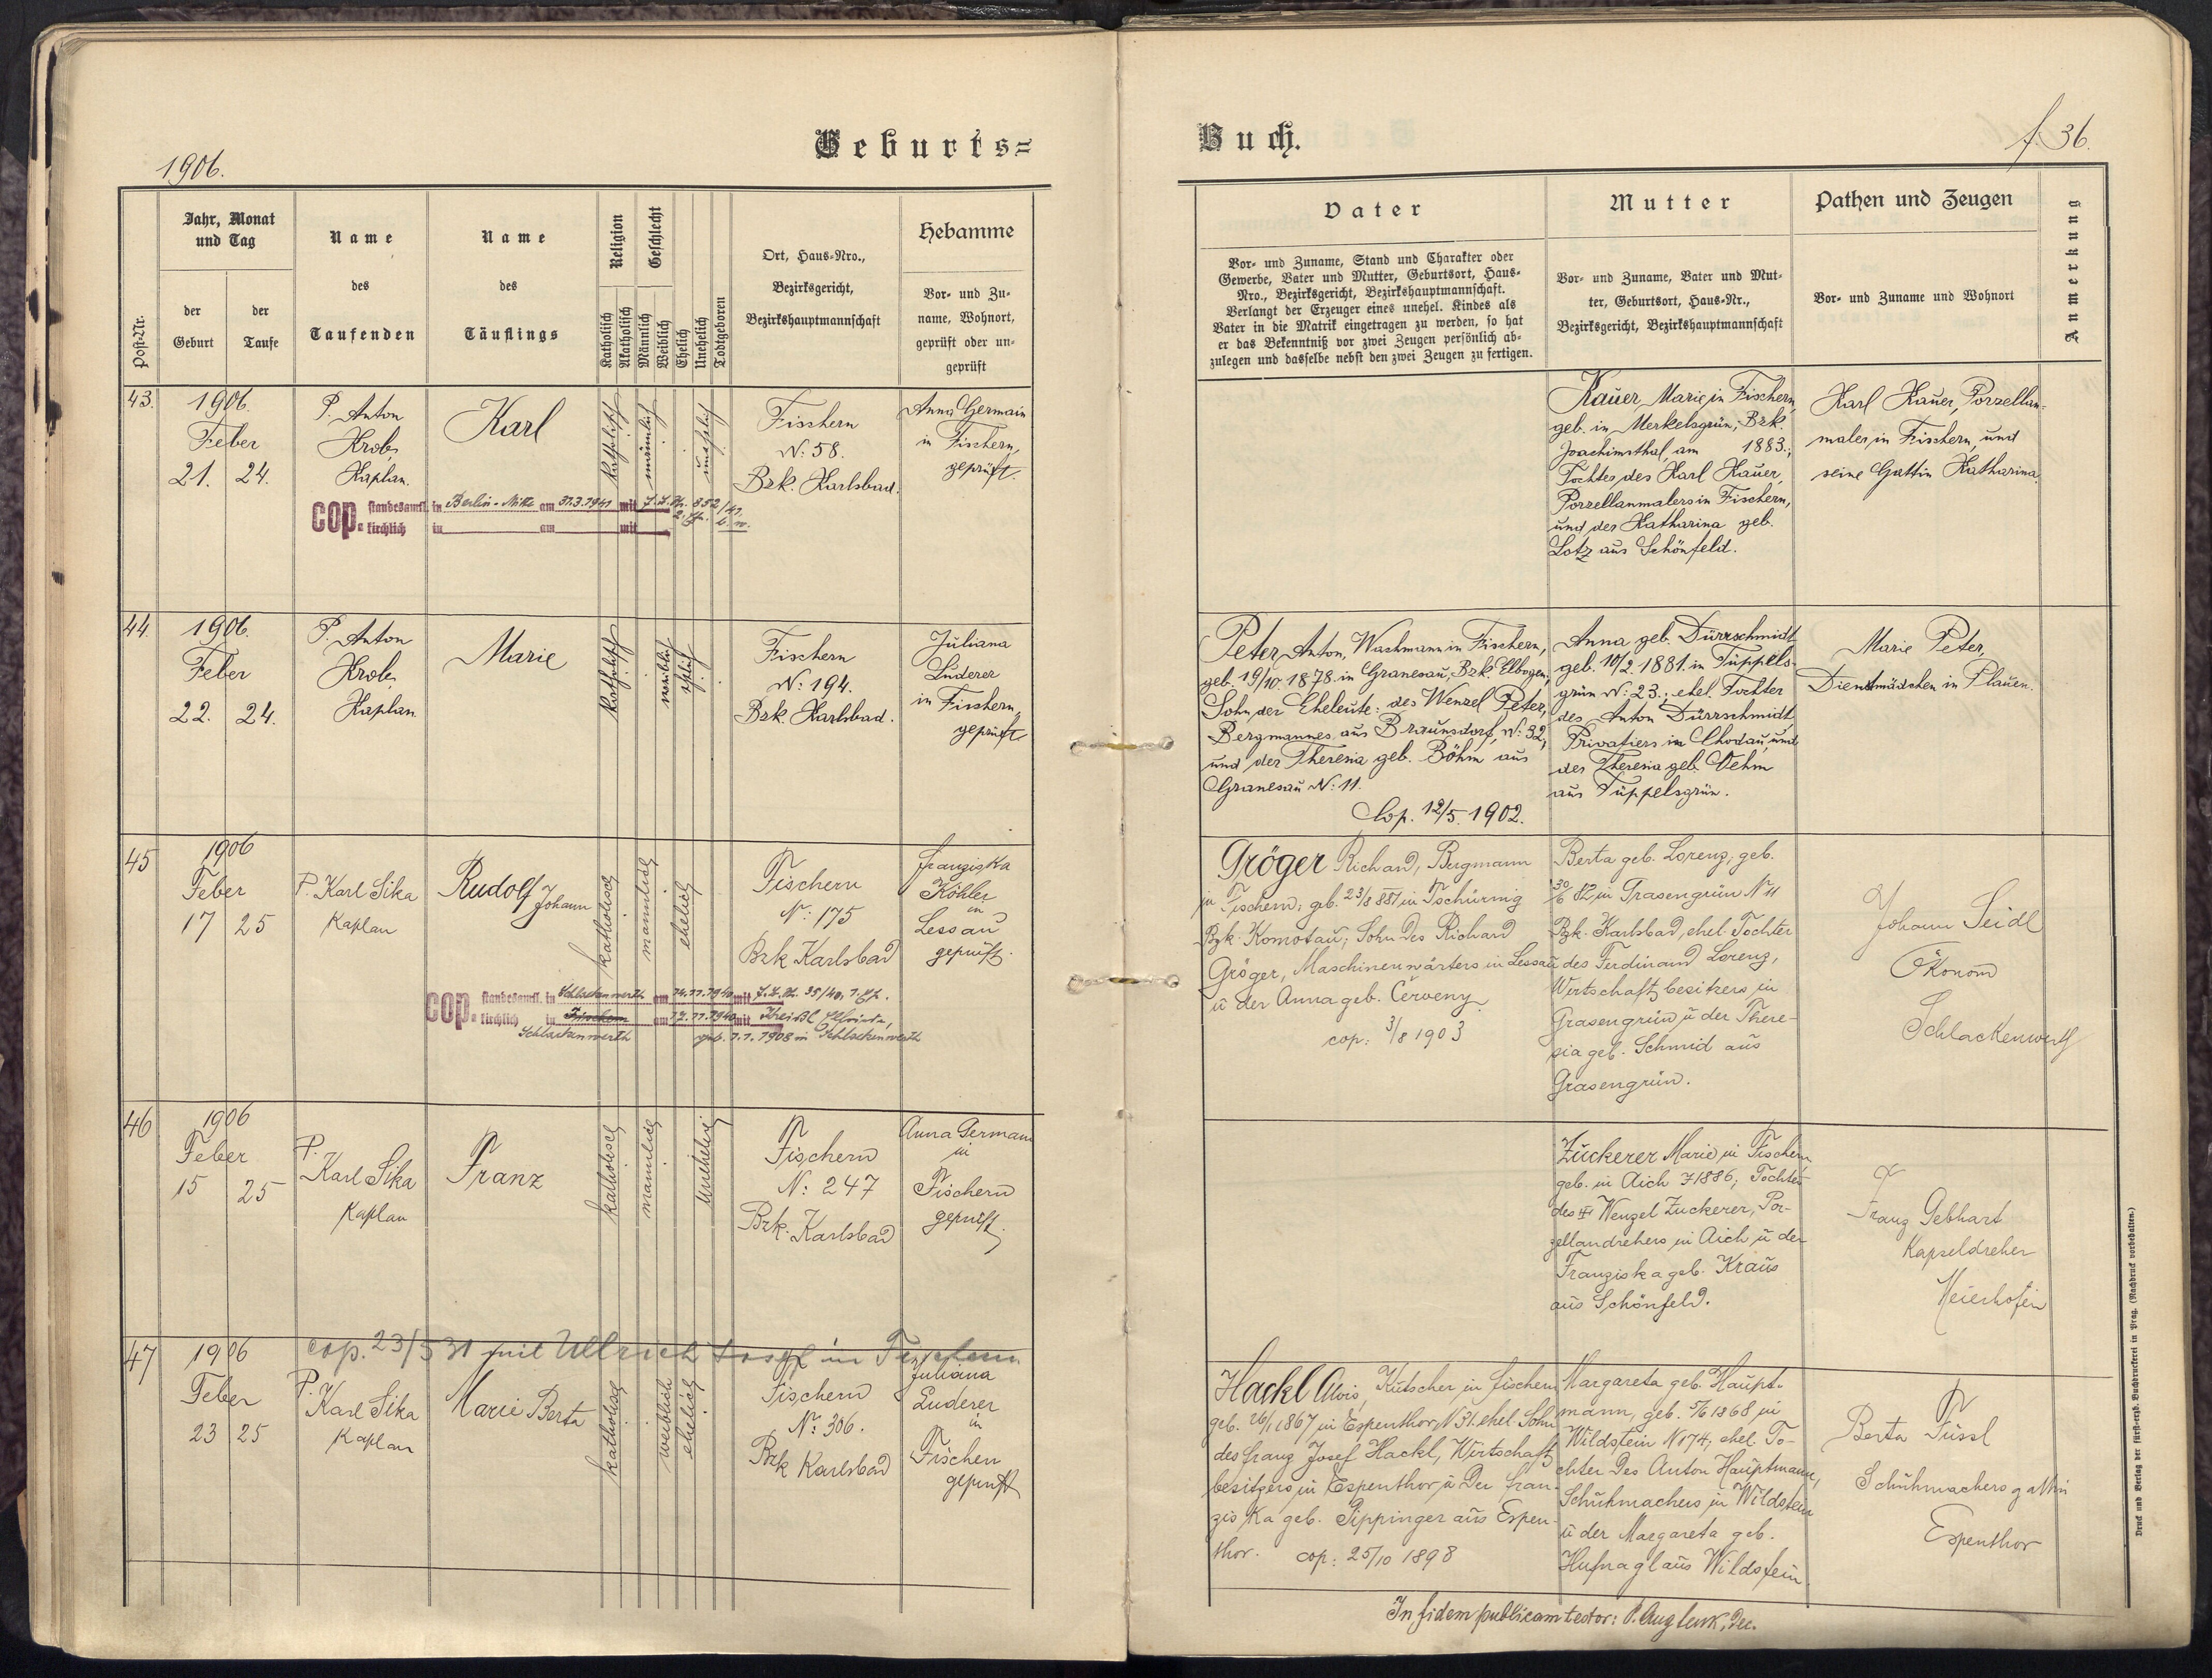 Geburts=
1906.
Post-Nr.
Jahr, Monat und Tag
der Geburt
der Taufe
Name des Taufenden
Name des Täuflings
Religion
Katholisch
Akatholisch
Geschlecht
Männlich
Weiblich
Ehelich
Unehelich
Todtgeboren
Ort, Haus-Nro.,
Bezirksgericht,
Bezirkshauptmannschaft
Hebamme
Vor- und Zu-
name, Wohnort,
geprüft oder un-
geprüft
43.
1906.
Feber
21. 24.
P. Anton
Krob,
Kaplan.
Karl
katholisch
männlich
unehelich
Fischern
N: 58.
Bzk. Karlsbad.
Anna Germain
in Fischern,
geprüft.
cop. standesamtl. in Berlin-Mitte am 31.3.1941 mit
kirchlich in am mit
44.
1906.
Feber
22. 24.
P. Anton
Krob,
Kaplan
Marie
katholisch
weiblich
ehelich
Fischern
N: 194.
Bzk Karlsbad.
Juliana
Luderer
in Fischern,
geprüft
45
1906
Feber
17 25
P. Karl Sika
Kaplan
Rudolf Johann
katholisch
männlich
ehelich
Fischern
N: 175
Bzk Karlsbad
Franziska
Köhler
in
Lessau
geprüft.
cop. standesamtl. in Schlackenwerth am 14.11.1940 mit
kirchlich in Fischern am 17.11.1940 mit
Schlackenwerth geb. 1.1.1908 in Schlackenwerth
46
1906
Feber
15 25
P.
Karl Sika
Kaplan
Franz
katholisch
männlich
unehelich
Fischern
N: 247
Bzk. Karlsbad
Anna German
in
Fischern
geprüft.
cop. 23/5 31 mit Ullrich Josef in Fischern
47
1906
Feber
23 25
P.
Karl Sika
Kaplan
Marie Berta
katholisch
weiblich
ehelich
Fischern
N: 306.
Bzk Karlsbad
Juliana
Luderer
in
Fischern
geprüft
Buch.
f. 36.
Vater
Vor- und Zuname, Stand und Charakter oder
Gewerbe, Vater und Mutter, Geburtsort, Haus-
Nro., Bezirksgericht, Bezirkshauptmannschaft.
Verlangt der Erzeuger eines unehel. Kindes als
Vater in die Matrik eingetragen zu werden, so hat
er das Bekenntniß vor zwei Zeugen persönlich ab-
zulegen und dasselbe nebst den zwei Zeugen zu fertigen.
Mutter
Vor- und Zuname, Vater und Mut-
ter, Geburtsort, Haus-Nr.,
Bezirksgericht, Bezirkshauptmannschaft
Pathen und Zeugen
Vor- und Zuname und Wohnort
Anmerkung
Kauer, Marie in Fischern,
geb. in Merkelsgrün, Bzk.
Joachimsthal, am 1883.;
Tochter des Karl Kauer,
Porzellanmalers in Fischern,
und der Katharina geb.
Lotz aus Schönfeld.
Karl Kauer, Porzellan-
maler in Fischern, und
seine Gattin Katharina.
Peter, Anton, Wachmann in Fischern,
geb. 19/10. 1878. in Granesau, Bzk. Elbogen,
Sohn der Eheleute: des Wenzel Peter,
Bergmannes aus Braunsdorf, N: 32,
und der Theresia geb. Böhm aus
Granesau N: 11.
Cop. 12/5. 1902.
Anna geb. Dürrschmidt
geb. 10/2. 1881. in Tüppels-
grün N: 23., ehel. Tochter
des Anton Dürrschmidt
Privatiers in Chodau, und
der Theresia geb. Oehm
aus Tüppelsgrün.
Marie Peter,
Dienstmädchen in Plauen.
Gröger Richard, Bergmann
in Fischern; geb. 23/8 881 in Tschürnig
Bzk. Komotau; Sohn des Richard
Gröger, Maschinenwärters in Lessau
u der Anna geb. Cerveny
cop: 3/8 1903
Berta geb. Lorenz, geb.
30/6 82 in Grasengrün N 11
Bzk. Karlsbad, ehel. Tochter
des Ferdinand Lorenz,
Wirtschaftsbesitzers in
Grasengrün u der There-
sia geb. Schmid aus
Grasengrün.
Johann Seidl
Ökonom
Schlackenwerth
Zuckerer Marie in Fischern
geb. in Aich 1886; Tochter
des Wenzel Zuckerer, Por-
zellandrehers in Aich u der
Franziska geb. Kraus
aus Schönfeld.
Franz Gebhart
Kapseldreher
Meierhöfen
Hackl Alois, Kutscher in Fischern
geb. 26/1 1867 in Espenthor, N 31. ehel. Sohn
des Franz Josef Hackl, Wirtschafts
besitzers in Espenthor u der Fran-
ziska geb. Pippinger aus Espen-
thor. cop: 25/10 1898
Margareta geb. Haupt-
mann, geb. 5/6 1868 in
Wildstein N 174; ehel. To-
chter des Anton Hauptmann,
Schuhmachers in Wildstein
u der Margareta geb.
Hufnagl aus Wildstein.
Berta Füssl
Schuhmachers gattin
Espenthor
In fidem publicam testor:
Druck und Verlag der fürst-erzb. Buchdruckerei in Prag. (Nachdruck vorbehalten.)